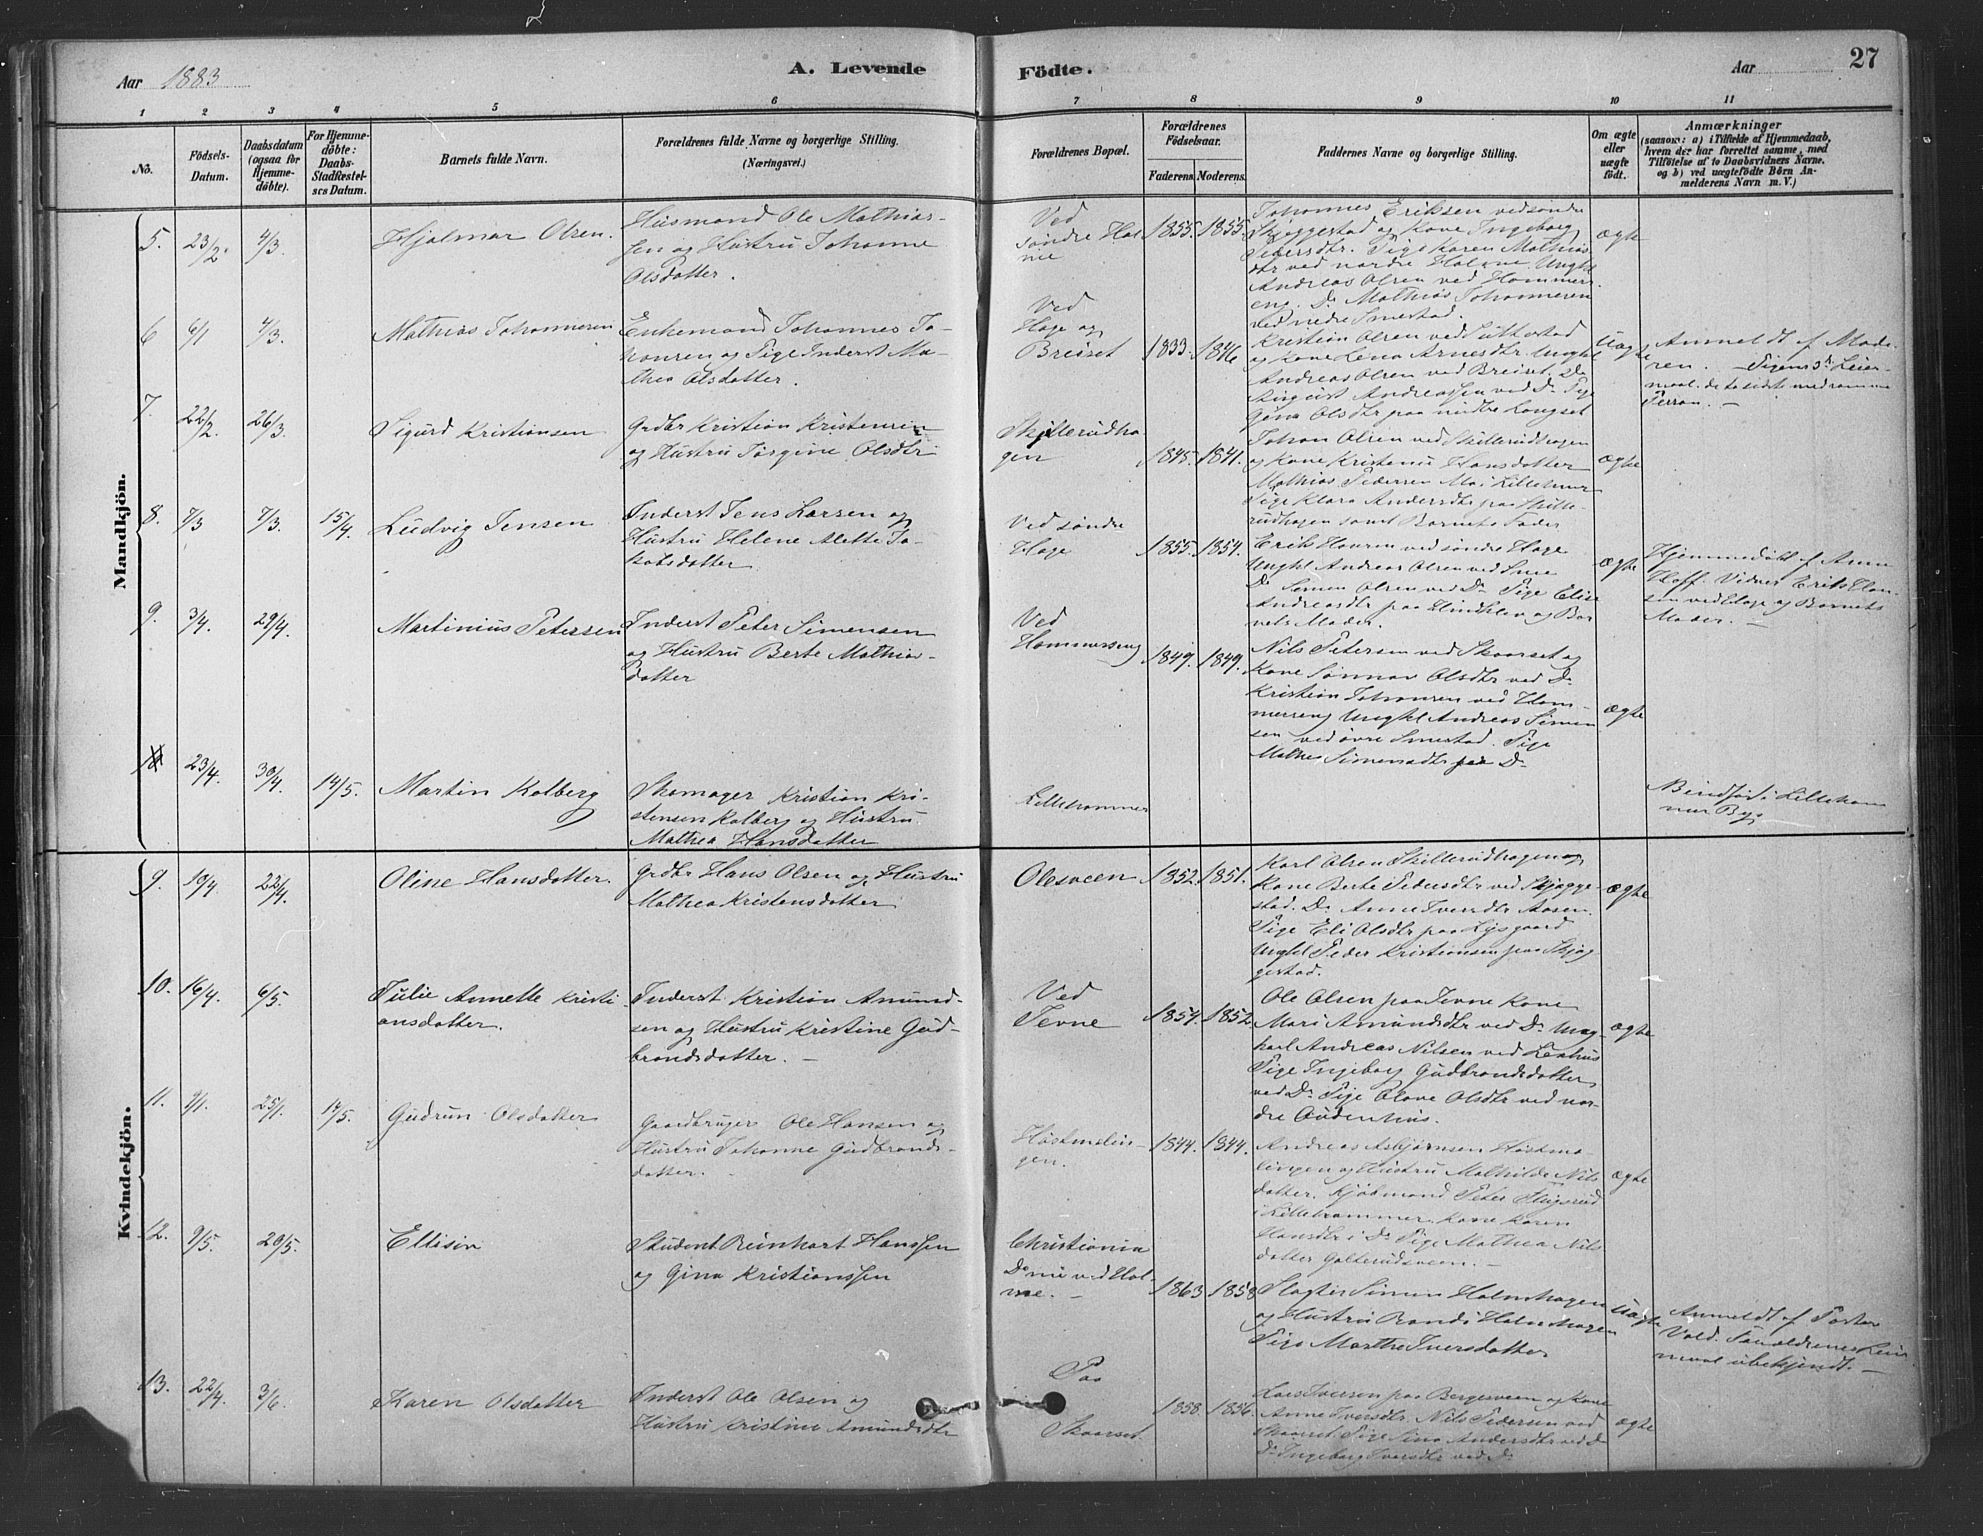 Aar 1883
A. Levende
Födte.
Aar
27
1 2 3 4 5 6 7 8 9 10 11
No.
Födsels-Datum.
Daabsdatum (ogsaa for Hjemme-döbte).
For Hjemme-döbte: Daabs-Stadfæstel-ses Datum.
Barnets fulde Navn.
Forældrenes fulde Navne og borgerlige Stilling. (Næringsvei.)
Forældrenes Bopæl.
Forældrenes Födselsaar.
Faderens. Moderens.
Faddernes Navne og borgerlige Stilling.
Om ægte eller uægte födt.
Anmærkninger
(saasom: a) i Tilfælde af Hjemmedaab, hvem der har forrettet samme, med Tilföielse af to Daabsvidners Navne, og b) ved uægtefödte Börn Anmelderens Navn m. V.)
Mandkjön.
5. 23/2 4/3 Hjalmar Olsen.
Husmand Ole Mathias-
sen og Hustru Johanne
Olsdatter.
Ved
søndre Hol-
me
1855. 1855.
Johannes Eriksen ved søndre
Skjæggestad og Kone Ingeborg
Pedersdtr. Pige Karen Mathias
dtr ved nordre Holme. Ungkl
Andreas Olsen ved Hammers
eng. Do Mathias Johannesen
ved nedre Smestad.
ægte
6 6/1 4/3. Mathias Johannesen
Enkemand Johannes Jo-
hansen og Pige Inderst Ma-
thea Olsdatter.
Ved
Hage og
Breiset
1833. 1846
Kristian Olsen ved Sutterstad
og Kone Lena Arnesdtr Ungkl
Andreas Olsen ved Breiset. Do
Andreassen ved Do Pige
Gina Olsdtr paa
Uægte
Anmeldt af Mode-
ren. – Pigens 3die Leier-
maal. de to sidst med samme
Person. –
7. 22/2. 26/3. Sigurd Kristiansen
Grdbr Kristian Kristensen
og Hustru Jørgine Olsdtr
Skillerudha-
gen
1845. 1841.
Johan Olsen ved Skillerudhagen
og Kone Kristense Hansdatter
Mathias Pedersen Moe i Lillehamer
Pige Klara Andersdtr paa Skille-
rudhagen samt Barnets Fader
ægte
8. 7/3 7/3. 15/4 Ludvig Jensen
Inderst Jens Larsen og
Hustru Helene Alette Ja-
kobsdatter
Ved søndre
Hage
1855. 1854.
Erik Hansen ved søndre Hage
Ungkl Andreas Olsen ved Sme
Do Simen Olsen ved Do Pige Elise
Andreasdtr paa Hindklev og Bar
nets Moder.
ægte
Hjemmedøbt af Anne
Hoff. Vidner Erik Han-
sen ved Hage og Barnets
Moder. –
9. 3/4. 29/4. Martinius Petersen
Inderst Peter Simensen
og Hustru Berte Mathias-
datter
Ved
Hammerseng
1849. 1849.
Nils Petersen ved Skaarset og
Kone Sønnav Olsdtr ved Do
Kristian Johansen ved Ham-
merseng Ungkl Andreas Simen
sen ved øvre Smestad. Pige
Mathea Simensdtr paa Do
ægte
10 23/4. 30/4 14/5. Martin Kolberg
Skomager Kristian Kri-
stensen Kolberg og Hustru
Mathea Hansdatter
Lillehammer
i Lilleham
mer By
Kvindekjön.
9. 10/4 22/4. Oline Hansdatter.
Grdbr Hans Olsen og Hustru
Mathea Kristensdatter
Olesveen
1852. 1851.
Karl Olsen Skillerudhagen og
Kone Berte Pedersdtr ved Skjægge-
stad. Do Anne Iversdtr Aasen.
Pige Eli Olsdtr paa Lysgaard
Ungkl Peder Kristiansen paa Skjæg
gestad.
ægte
10. 16/4 6/5. Julie Annette Kristi-
ansdatter.
Inderst Kristian Amund-
sen og Hustru Kristine Gud-
brandsdatter. –
Ved
Jevne
1857. 1852.
Ole Olsen paa Jevne Kone
Mari Amundsdtr ved Do Ung-
karl Andreas Nilsen ved
Pige Ingeborg Gudbrandsdatter
ved Do Pige Olave Olsdtr ved nor-
dre Audenhus.
ægte
11. 9/1. 25/1. 14/5. Gudrun Olsdatter
Gaardbruger Ole Hansen og
Hustru Johanne Gudbrands-
datter. –
Høistmælin-
gen.
1844. 1844.
Andreas Asbjørnsen Høistmæ-
lingen og Hustru Mathilde Nils
datter. Kjøbmand Peter Skigerud
i Lillehammer Kone Karen
Hansdtr i Do Pige Mathea Nils
datter
ægte
12. 9/5. 20/5. Ellisiv
Student Reinhart Hanssen
og Gina Kristianssen
Christiania
Do nu ved Hol-
me. –
1863 1858
Slagter Simen Holmhagen
og Hustru Randi Holmhagen
Pige Marthe Iversdatter
Uægte
Anmeldt af
Forældrenes Leier
maal ubekjendt. –
13. 22/4. 3/6. Karen Olsdatter
Inderst Ole Olsen og
Hustru Kristine Amundsdtr
Paa
Skaarset.
1858. 1856.
Lars Iversen paa Bergesveen og Kone
Anne Iversdtr. Nils Pedersen ved
Skaarset Pige Sina Andersdtr ved Do
Do Ingeborg Iversdtr ved Do
ægte